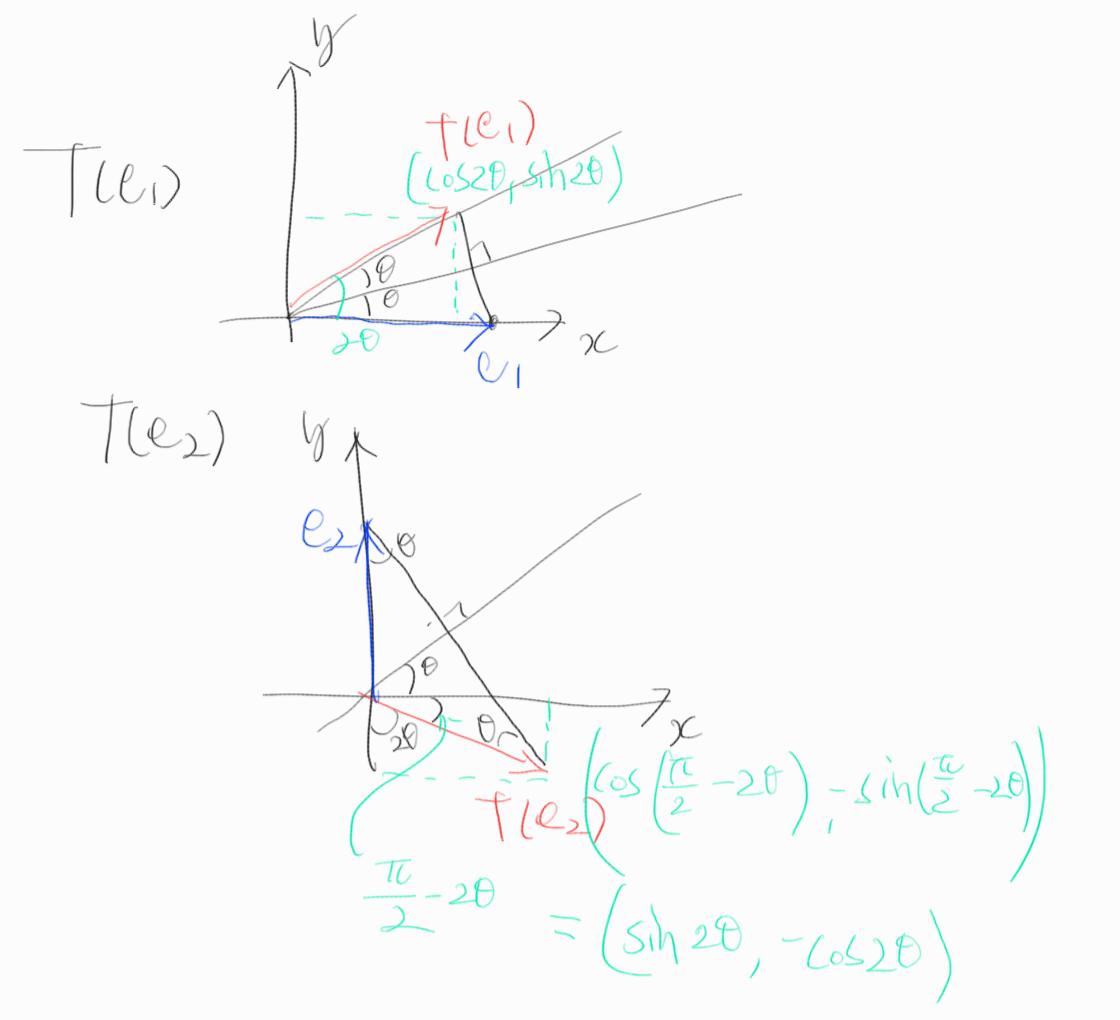 y
T(e₁)
T(e₁)
(cos2θ, sin2θ)
θ
θ
2θ
x
e₁
T(e₂)
y
e₂
θ
θ
x
2θ
θ
T(e₂)
(cos(π/2 - 2θ), -sin(π/2 - 2θ))
π/2 - 2θ
= (sin 2θ, -cos2θ)